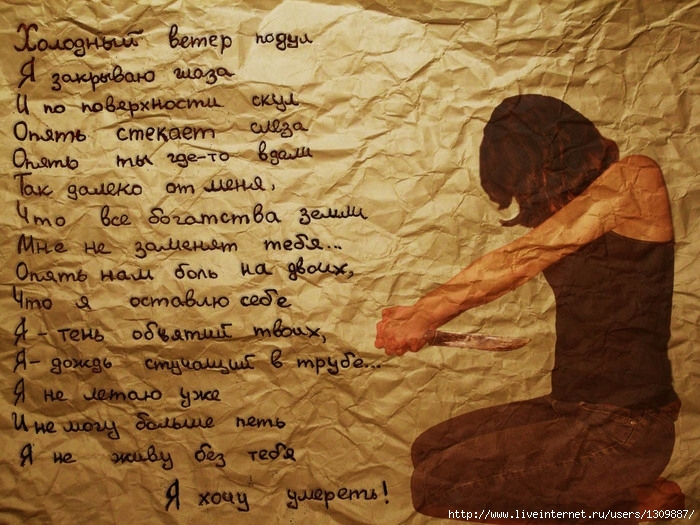 Холодный ветер подул
Я закрываю глаза
И по поверхности скул
Опять стекает слеза
Опять ты где-то вдали
Так далеко от меня,
Что все богатства земли
Мне не заменят тебя...
Опять нам боль на двоих,
Что я оставлю себе
Я - тень объятий твоих,
Я - дождь стучащий в трубе...
Я не летаю уже
И не могу больше петь
Я не живу без тебя
Я хочу умереть!
http://www.liveinternet.ru/users/1309887/